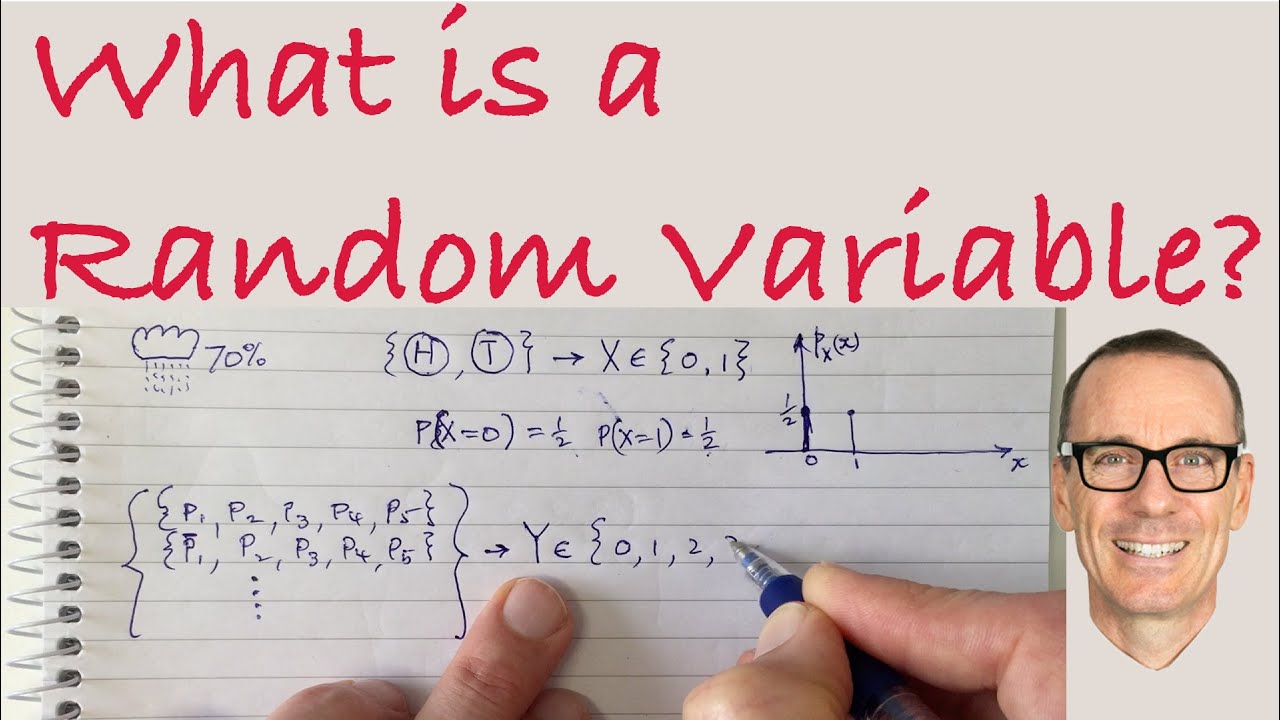 What is a
Random Variable?
70%
{H, T} → X ∈ {0, 1}
P(X=0) = 1/2 P(X=1) = 1/2
pₓ(x)
1/2
0 1 x
{P₁, P₂, P₃, P₄, P₅}
{P̄₁, P₂, P₃, P₄, P₅}
→ Y ∈ {0, 1, 2,